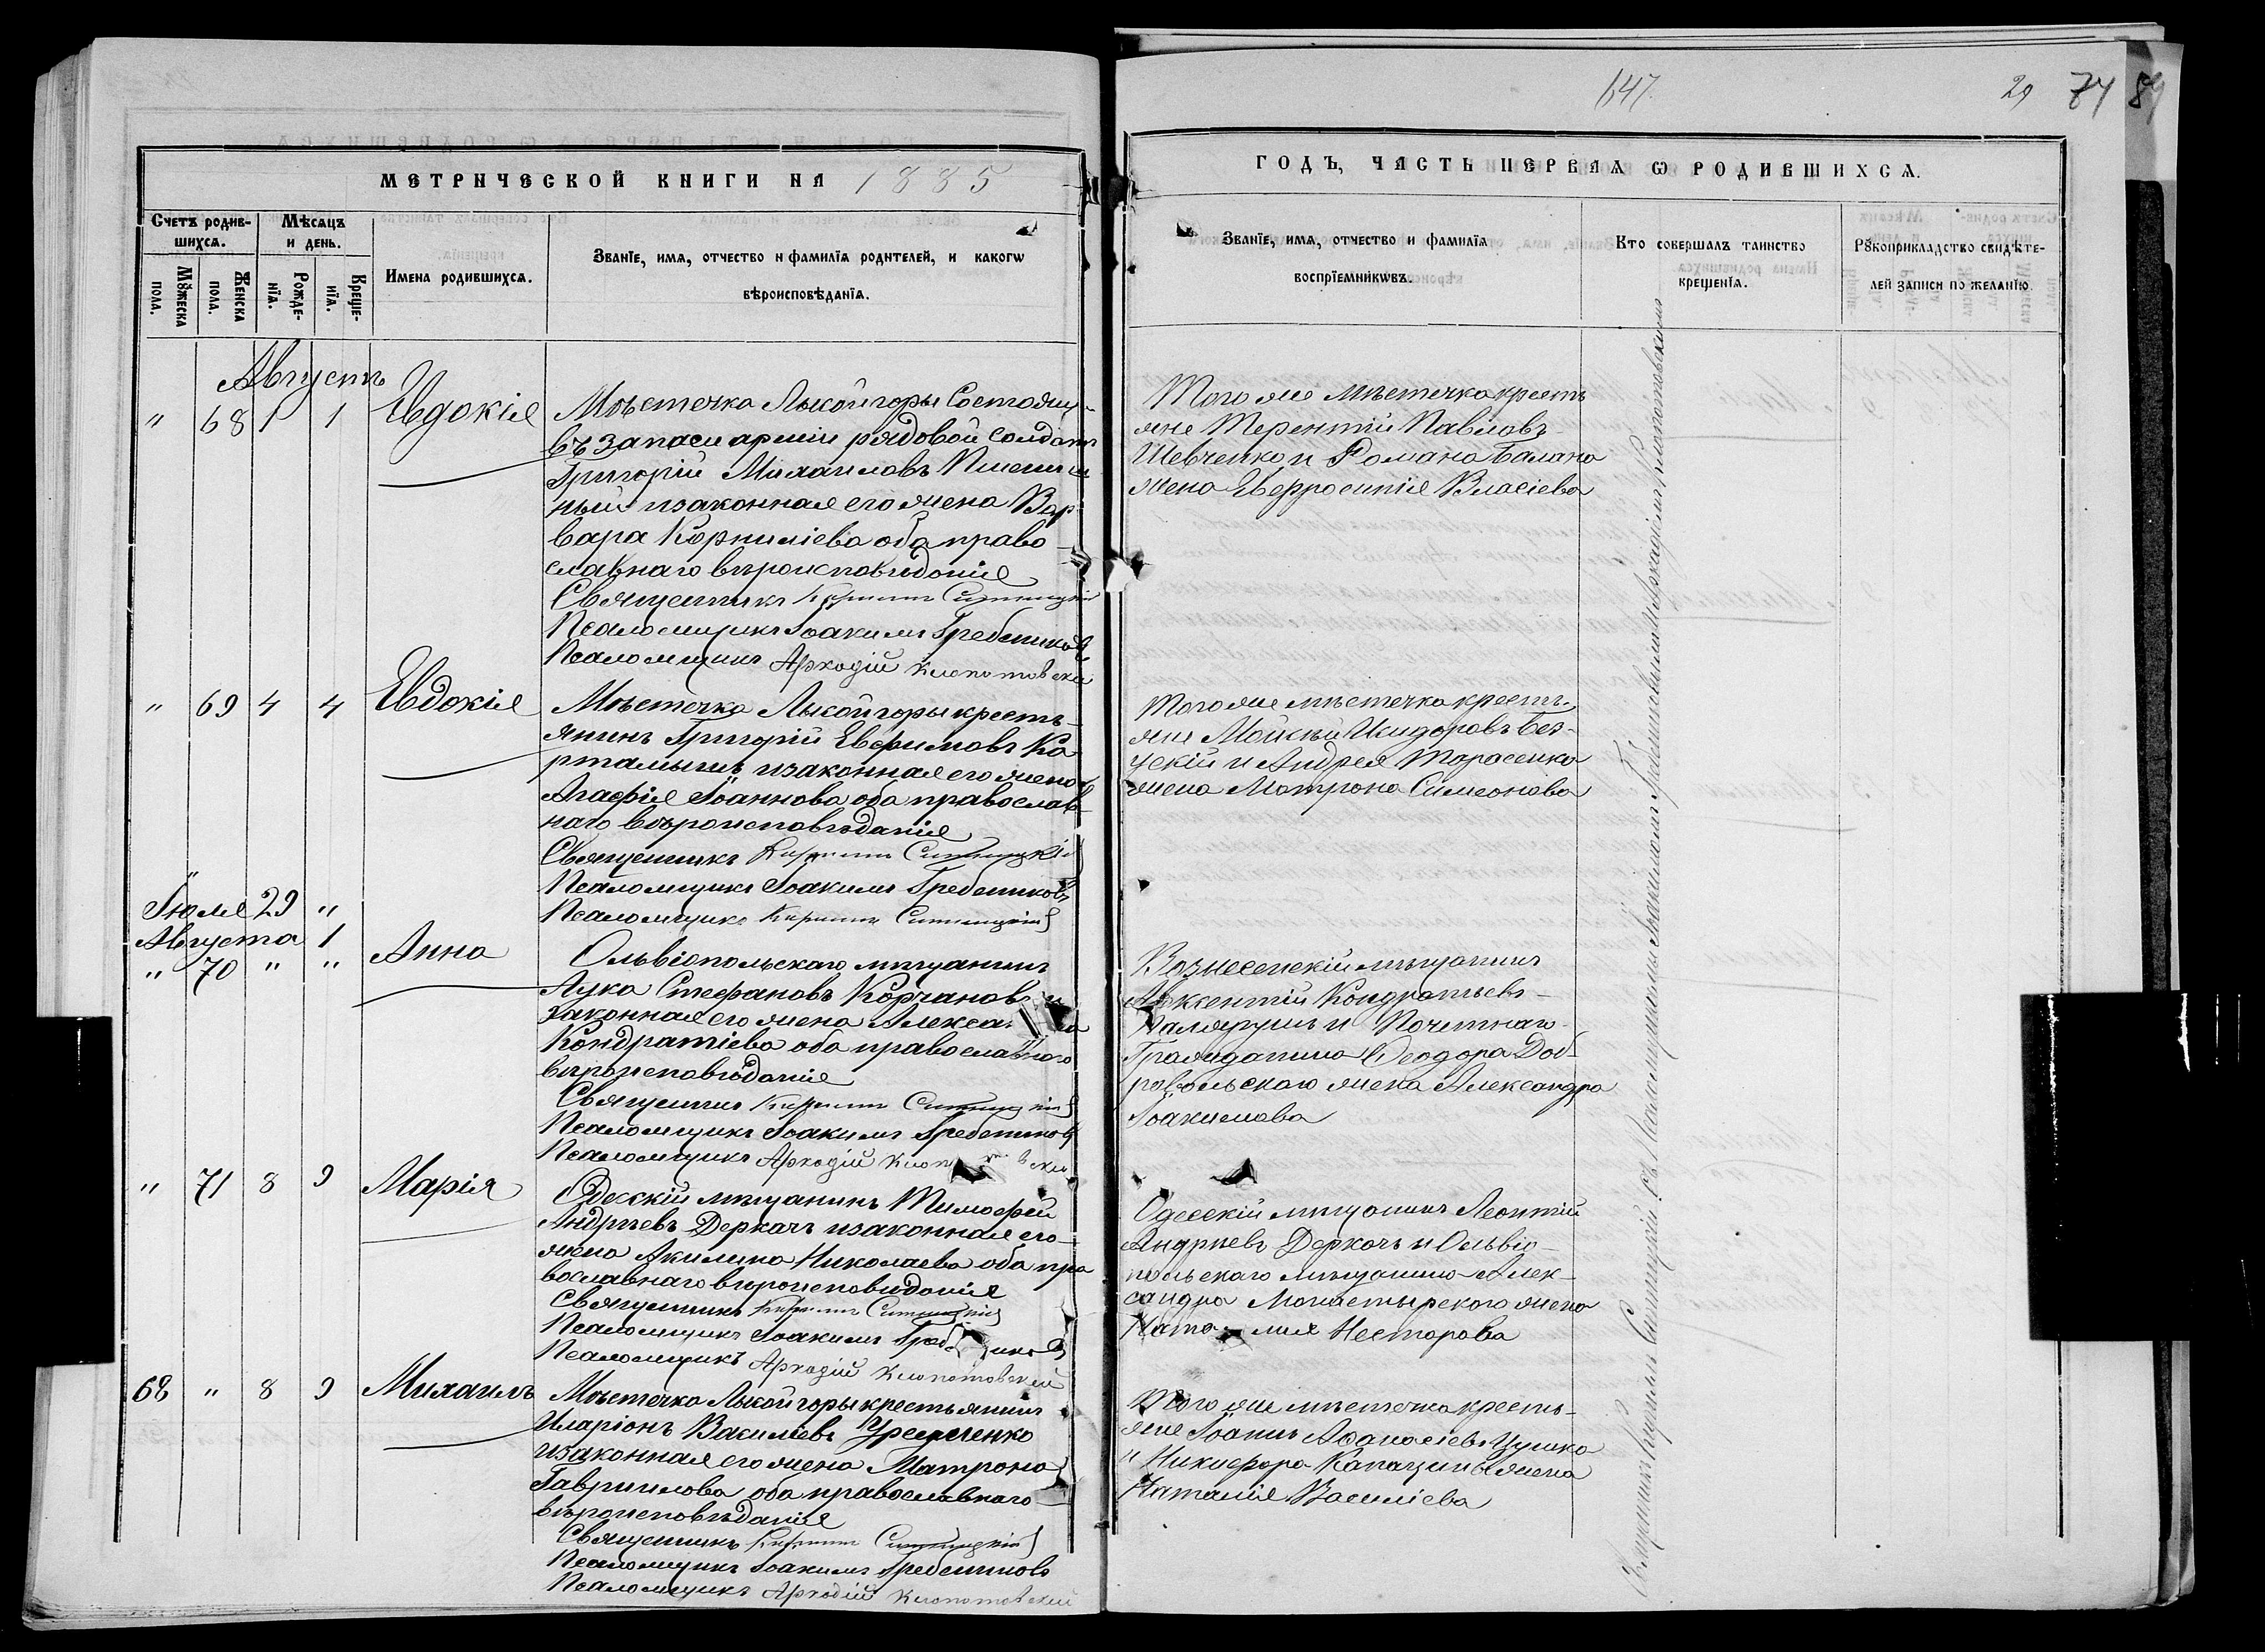 147.
29 74 89
МЕТРИЧЕСКОЙ КНИГИ НА 1885
ГОДЪ, ЧАСТЬ ПЕРВАЯ Ѡ РОДИВШИХСЯ.
Счетъ родив-
шихся.
Мѣсяцъ
и день.
Мꙋжеска
пола.
Женска
пола.
Рожде-
нїя.
Креще-
нїя.
Имена родившихся.
Званїе, имя, отчество и фамилїя родителей, и какогѡ
вѣроисповѣданїя.
Званїе, имя, отчество и фамилїя
воспрїемникѡвъ.
Кто совершалъ таинство
крещенїя.
Рꙋкоприкладство свидѣте-
лей записи по желанїю.
Августъ
" 68 1 1 Евдокія
Мѣстечка Лысойгоры Состоящ-
въ запаси арміи рядовой солдатъ
Григорій Михаиловъ
ный изаконная его жена Вар-
вара Корниліева оба право-
славнаго вѣроисповѣданія
Священникъ Кириллъ Ситницкій
Псаломщикъ Іоакимъ Гребенниковъ
Псаломщикъ Аркадій Клопотовскій
Того же мѣстечка кресть
яне Терентій Павловъ
Шевченко и Романа Балана
жена Евфросинія Власіева
" 69 4 4 Евдокія
Мѣстечка Лысойгоры кресть-
янинъ Григорій Евфимовъ Ка-
ртамышъ изаконная его жена
Агафія Іоаннова оба православ-
наго вѣроисповѣданія
Священникъ Кириллъ Ситницкій
Псаломщикъ Іоакимъ Гребенниковъ
Псаломщикъ Кириллъ Ситницкій
того же мѣстечка кресть-
яне Мойсей Исидоровъ Без-
ускій и Андрея Тарасенка
жена Матрона Симеонова
Іюля 29 "
Августа 1
" 70 " " Анна
Ольвіопольскаго мѣщанинъ
Лука Стефановъ Корчановъ и
законная его жена
Кондратіева оба православнаго
вѣроисповѣданія
Священникъ Кириллъ Ситницкій
Псаломщикъ Іоакимъ Гребенниковъ
Псаломщикъ Аркадій
Вознесенскій мѣщанинъ
Авксентій Кондратьевъ
и Почетнаго
Гражданина Ѳеодора Доб-
ровольскаго жена Александра
Іоакимова
" 71 8 9 Марія
Одесскій мѣщанинъ Тимофей
Андріевъ Деркачъ изаконная его
жена Акилина Николаева оба пра
вославнаго вѣроисповѣданія
Священникъ Кириллъ Ситницкій
Псаломщикъ Іоакимъ
Псаломщикъ Аркадій Клопотовскій
Одесскій мѣщанинъ Леонтій
Андріевъ Деркачъ и Ольвіо-
польскаго мѣщанина Алек-
сандра Монастырскаго жена
Наталия Несторова
68 " 8 9 Михаилъ
Мѣстечка Лысойгоры крестьянинъ
Иларіонъ Василіевъ
изаконная его жена Матрона
Гавриилова оба православнаго
вѣроисповѣданія
Священникъ Кириллъ Ситницкій
Псаломщикъ Іоакимъ Гребенниковъ
Псаломщикъ Аркадій Клопотовскій
Того же мѣстечка кресть-
яне Іоаннъ Аѳанасіевъ Цушко
и Никифора жена
Наталія Василіева
Священникъ Кириллъ Ситницкій съ Псаломщиками Іоакимомъ Гребенниковымъ и Аркадіемъ Клопотовскимъ